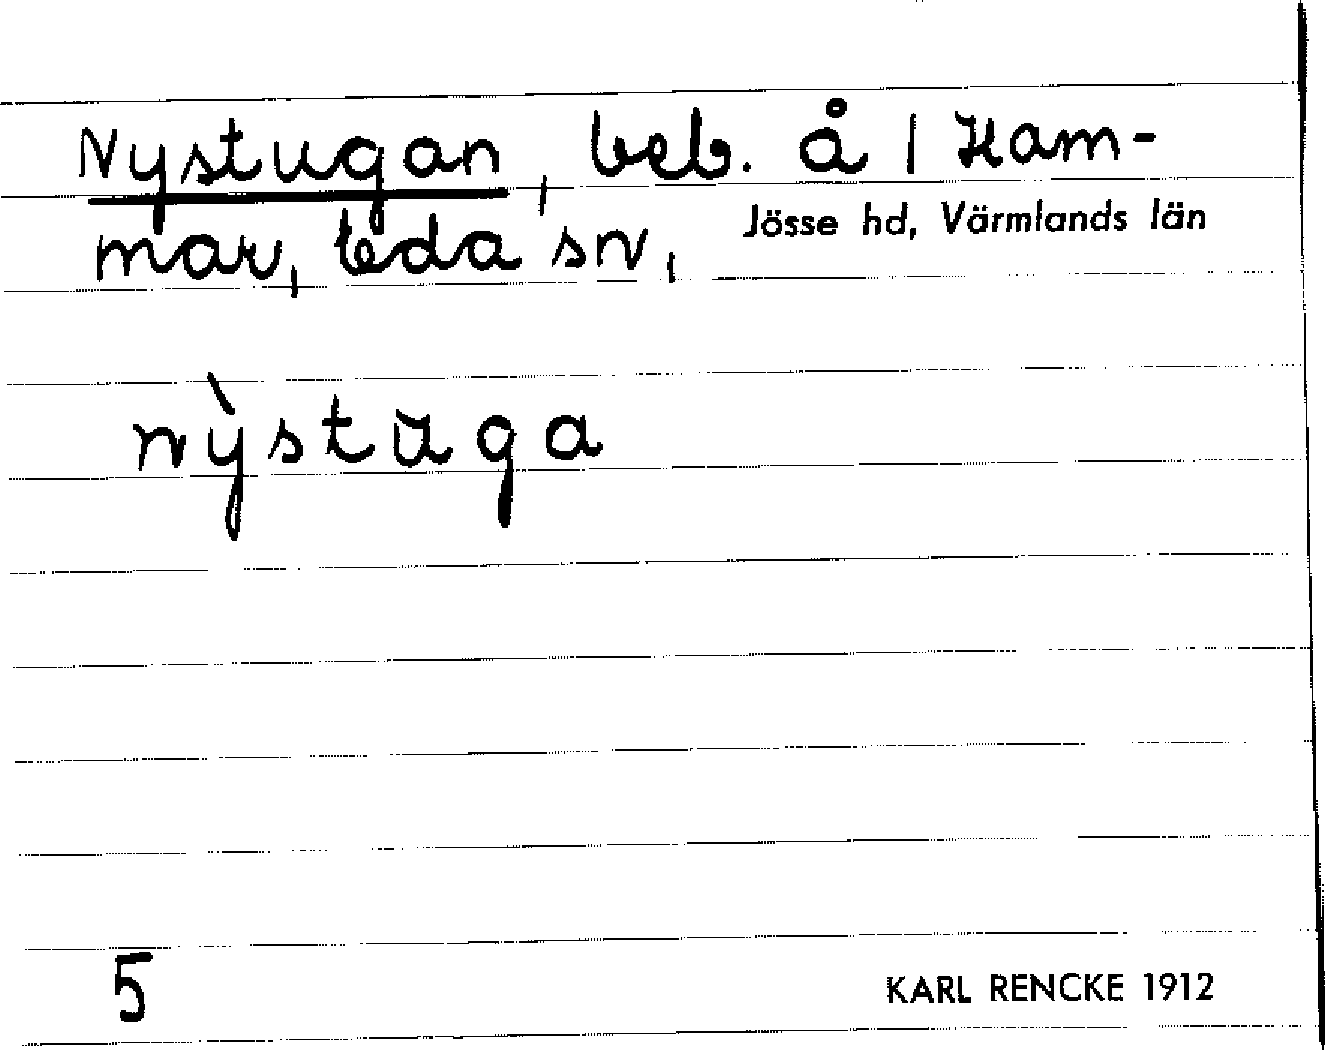 Nystugan, beb. å 1 Ham-
mar, Eda sn, Jösse hd, Värmlands län
nỳstuga
5
KARL RENCKE 1912